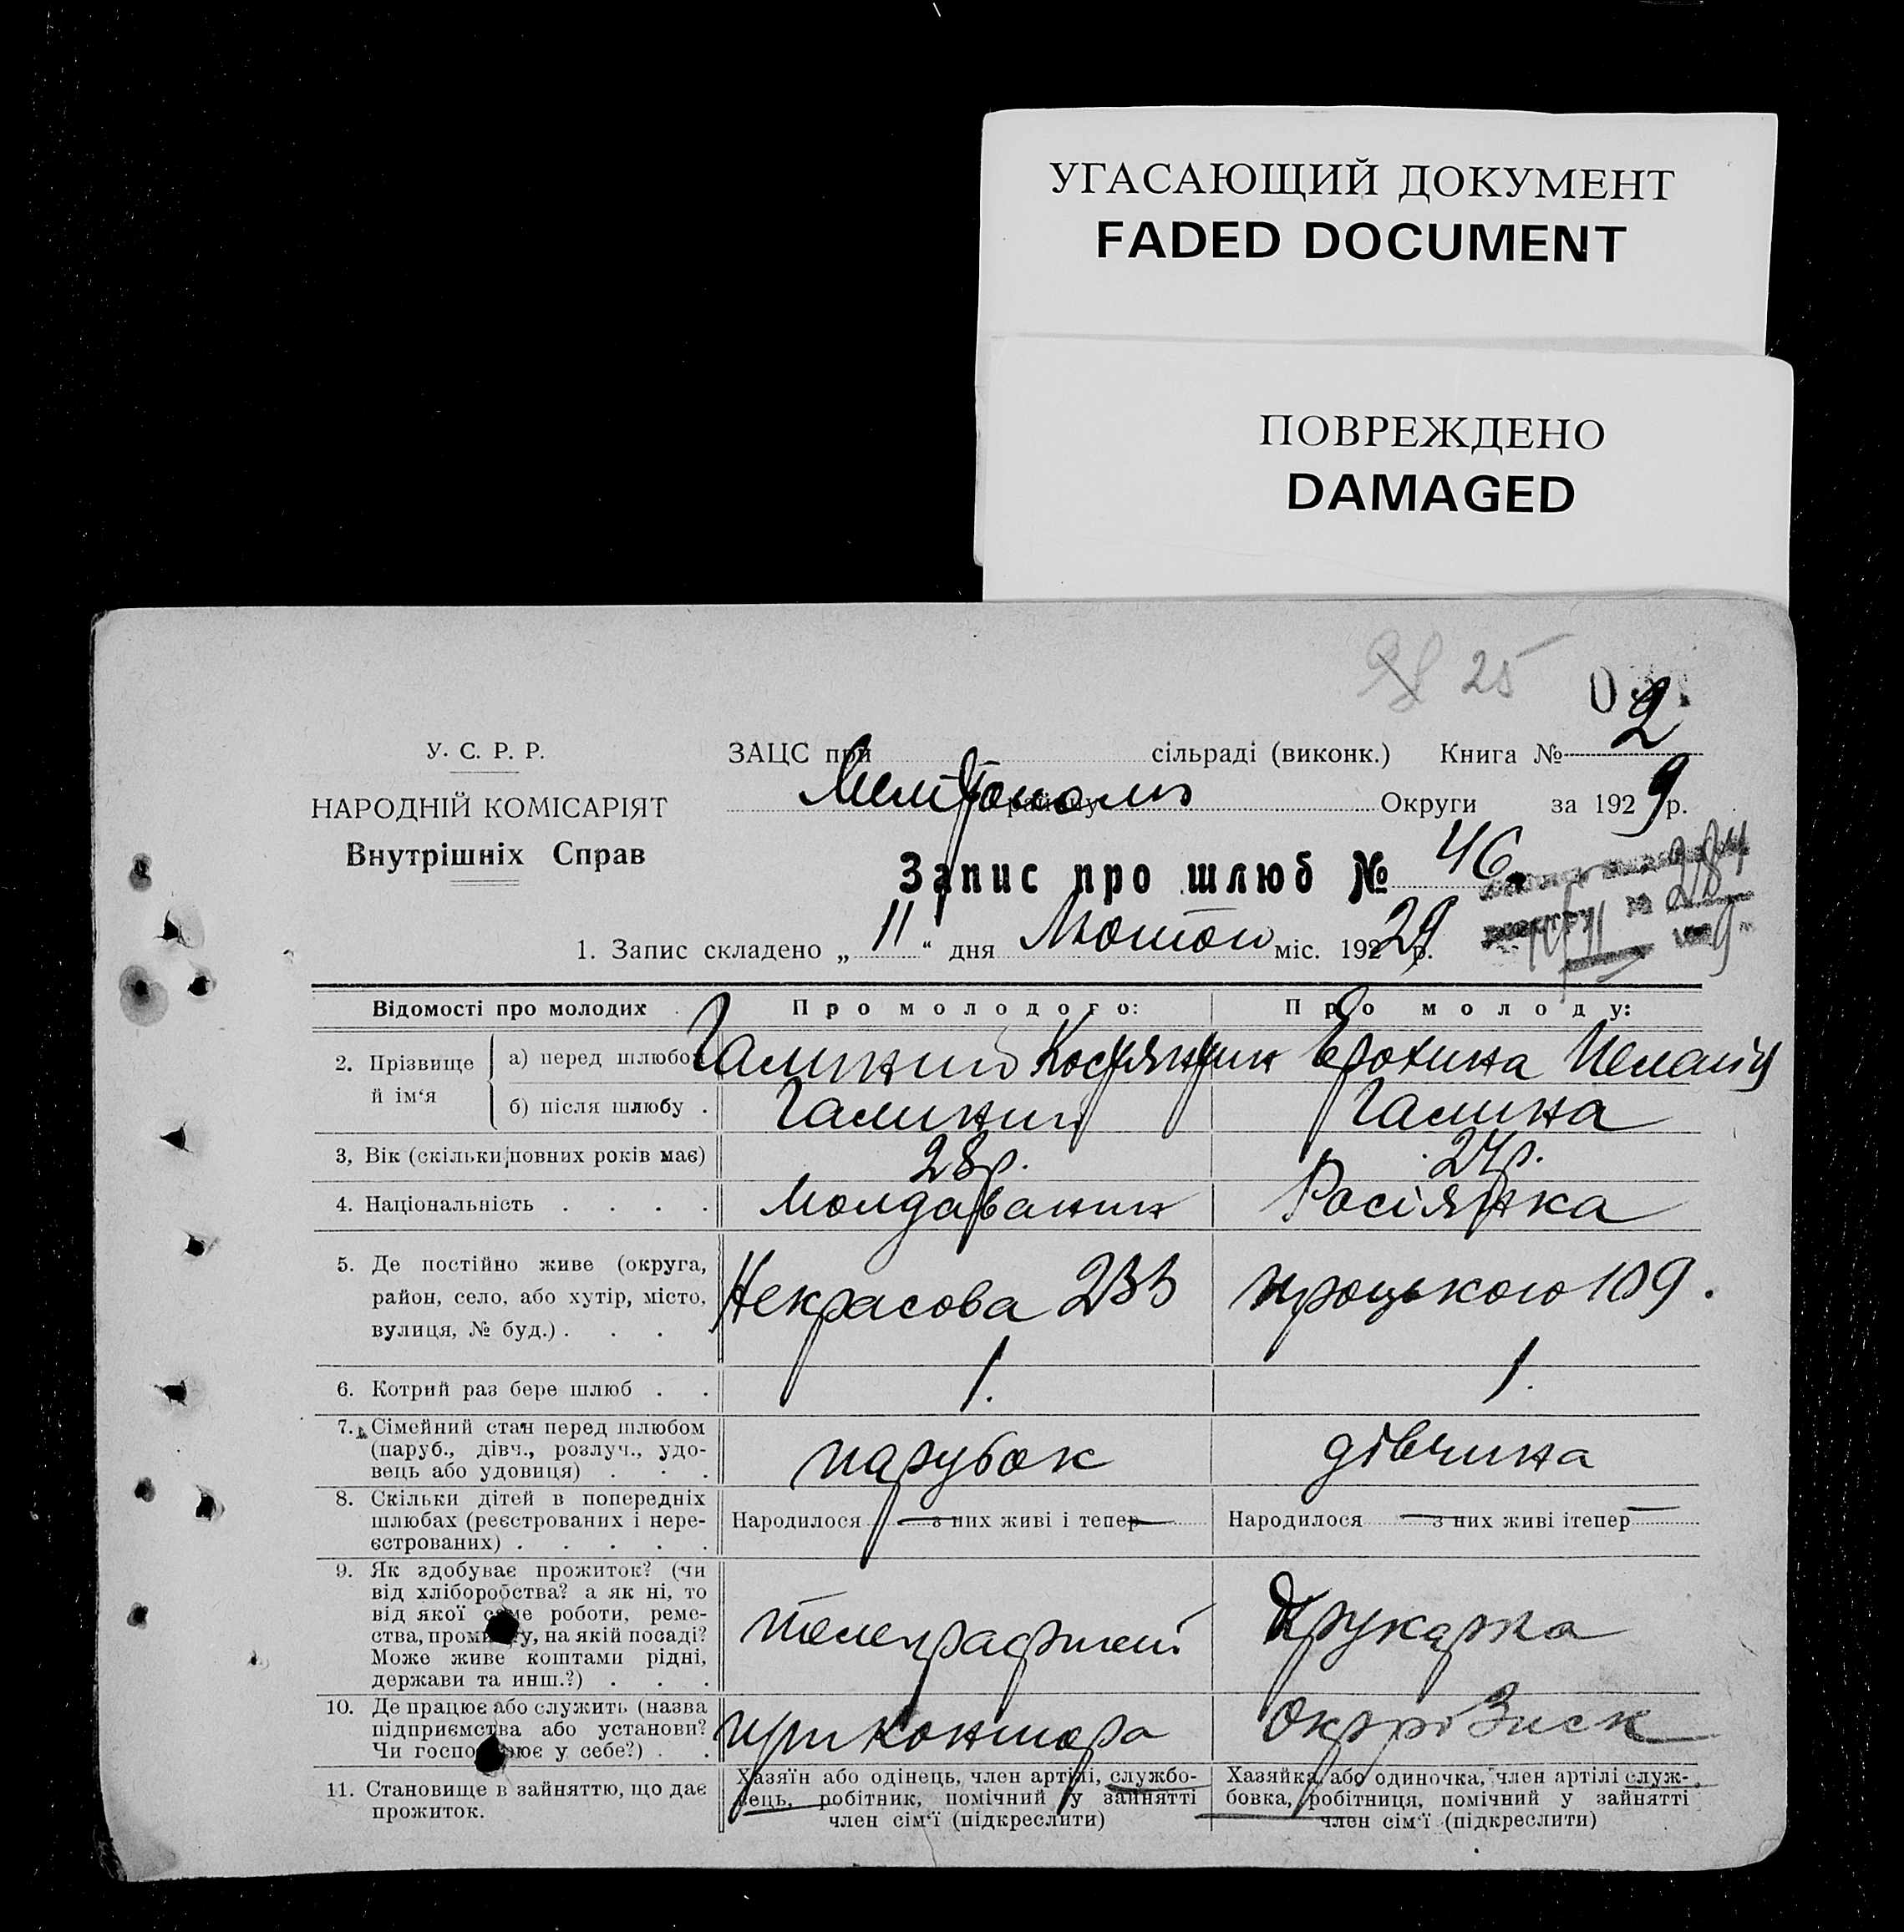 УГАСАЮЩИЙ ДОКУМЕНТ
FADED DOCUMENT
ПОВРЕЖДЕНО
DAMAGED
25
2
У. С. Р. Р.
НАРОДНІЙ КОМІСАРІЯТ
Внутрішніх Справ
ЗАЦС при сільраді (виконк.) Книга №
Мелітополь району Округи за 1929 р.
Запис про шлюб № 46
1. Запис складено „11“ дня Лютого міс. 192 29 р.
Відомості про молодих Про молодого: Про молоду:
2. Прізвище й ім‘я
а) перед шлюбом Галиний Ерохина
б) після шлюбу . Галиний Галина
3, Вік (скільки повних років має) 28р. 24р.
4. Національність . . . . Молдаванин Росіянка
5. Де постійно живе (округа,
район, село, або хутір, місто,
вулиця, № буд.) . . . . Некрасова 233 Троцького 109.
6. Котрий раз бере шлюб . . 1. 1.
7. Сімейний стан перед шлюбом
(паруб., дівч., розлуч., удо-
вець або удовиця) . . . парубок дівчина
8. Скільки дітей в попередніх
шлюбах (реєстрованих і нере-
єстрованих) . . . . .
Народилося — з них живі і тепер — Народилося — з них живі ітепер —
9. Як здобуває прожиток? (чи
від хліборобства? а як ні, то
від якої саме роботи, реме-
ства, промислу, на якій посаді?
Може живе коштами рідні,
держави та инш.?) . . . Друкарка
10. Де працює або служить (назва
підприємства або установи?
Чи господарює у себе?) . . контора
11. Становище в зайняттю, що дає
прожиток.
Хазяїн або одінець, член артілі, службо-
вець, робітник, помічний у зайнятті
член сім‘ї (підкреслити)
Хазяйка або одиночка, член артілі служ-
бовка, робітниця, помічний у зайнятті
член сім‘ї (підкреслити)